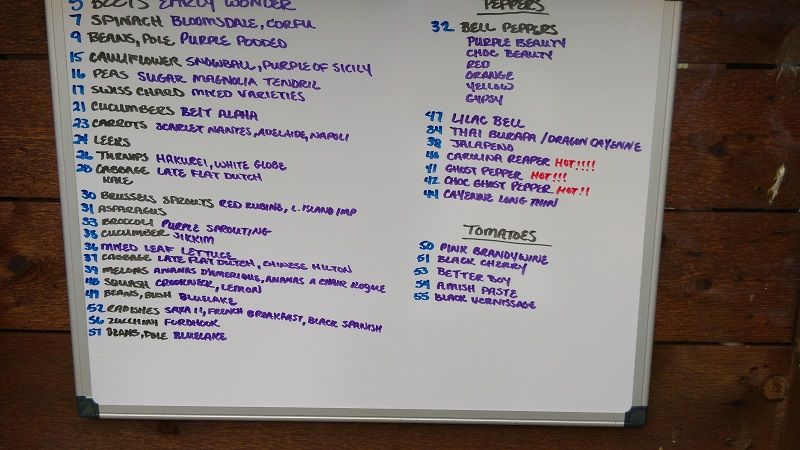 5 BEETS EARLY WONDER
7 SPINACH BLOOMSDALE, CORFU
9 BEANS, POLE PURPLE PODDED
15 CAULIFLOWER SNOWBALL, PURPLE OF SICILY
16 PEAS SUGAR MAGNOLIA TENDRIL
17 SWISS CHARD MIXED VARIETIES
21 CUCUMBERS BEIT ALPHA
23 CARROTS SCARLET NANTES, ADELAIDE, NAPOLI
24 LEEKS
26 TURNIPS HAKUREI, WHITE GLOBE
20 CABBAGE LATE FLAT DUTCH
KALE
30 BRUSSELS SPROUTS RED RUBINE, L. ISLAND IMP
31 ASPARAGUS
33 BROCCOLI PURPLE SPROUTING
35 CUCUMBER SIKKIM
36 MIXED LEAF LETTUCE
37 CABBAGE LATE FLAT DUTCH, CHINESE HILTON
39 MELONS ANANAS D'AMERIQUE, ANANAS A CHAIR ROGUE
48 SQUASH CROOKNECK, LEMON
49 BEANS, BUSH BLUELAKE
52 RADISHES SAXA II, FRENCH BREAKFAST, BLACK SPANISH
56 ZUCCHINI FORDHOOK
57 BEANS, POLE BLUELAKE
PEPPERS
32 BELL PEPPERS
PURPLE BEAUTY
CHOC BEAUTY
RED
ORANGE
YELLOW
GYPSY
47 LILAC BELL
34 THAI BURAPA / DRAGON CAYENNE
38 JALAPENO
40 CAROLINA REAPER HOT!!!!
41 GHOST PEPPER HOT!!!
42 CHOC GHOST PEPPER HOT!!
44 CAYENNE LONG THIN
TOMATOES
50 PINK BRANDYWINE
51 BLACK CHERRY
53 BETTER BOY
54 AMISH PASTE
55 BLACK VERNISSAGE